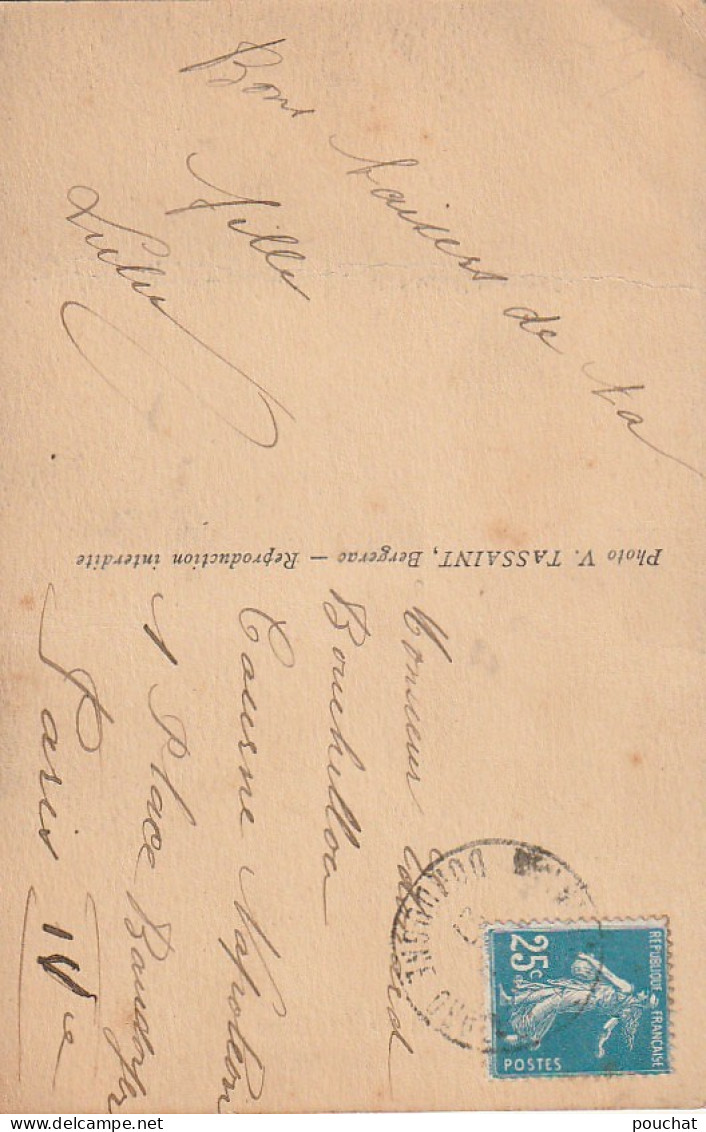 Bons baisers de ta
fille
Lulu
Photo V. TASSAINT, Bergerac — Reproduction interdite
Monsieur Edouard
Bouchillou
Caserne Napoléon
1 Place Baudoyer
Paris IVe
DORDOGNE
REPUBLIQUE FRANÇAISE
25c
POSTES
pouchat